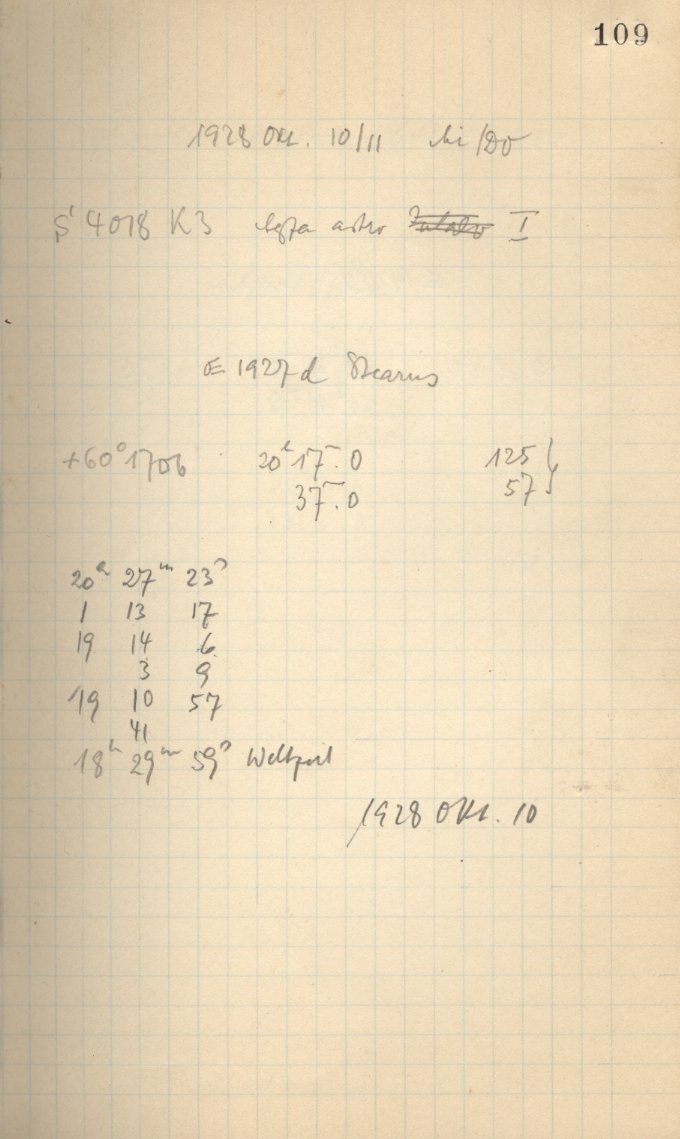 109
1928 Okt. 10/11 Mi/Do
S 4018 K3 Agfa astro I
1927d Stearns
+60° 1706 20ʰ 17ᵐ.0 125
37ᵐ.0 57
20ʰ 27ᵐ 23ˢ
1 13 17
19 14 6
3 9
19 10 57
41
18ʰ 29ᵐ 59ˢ Weltzeit
1928 Okt. 10